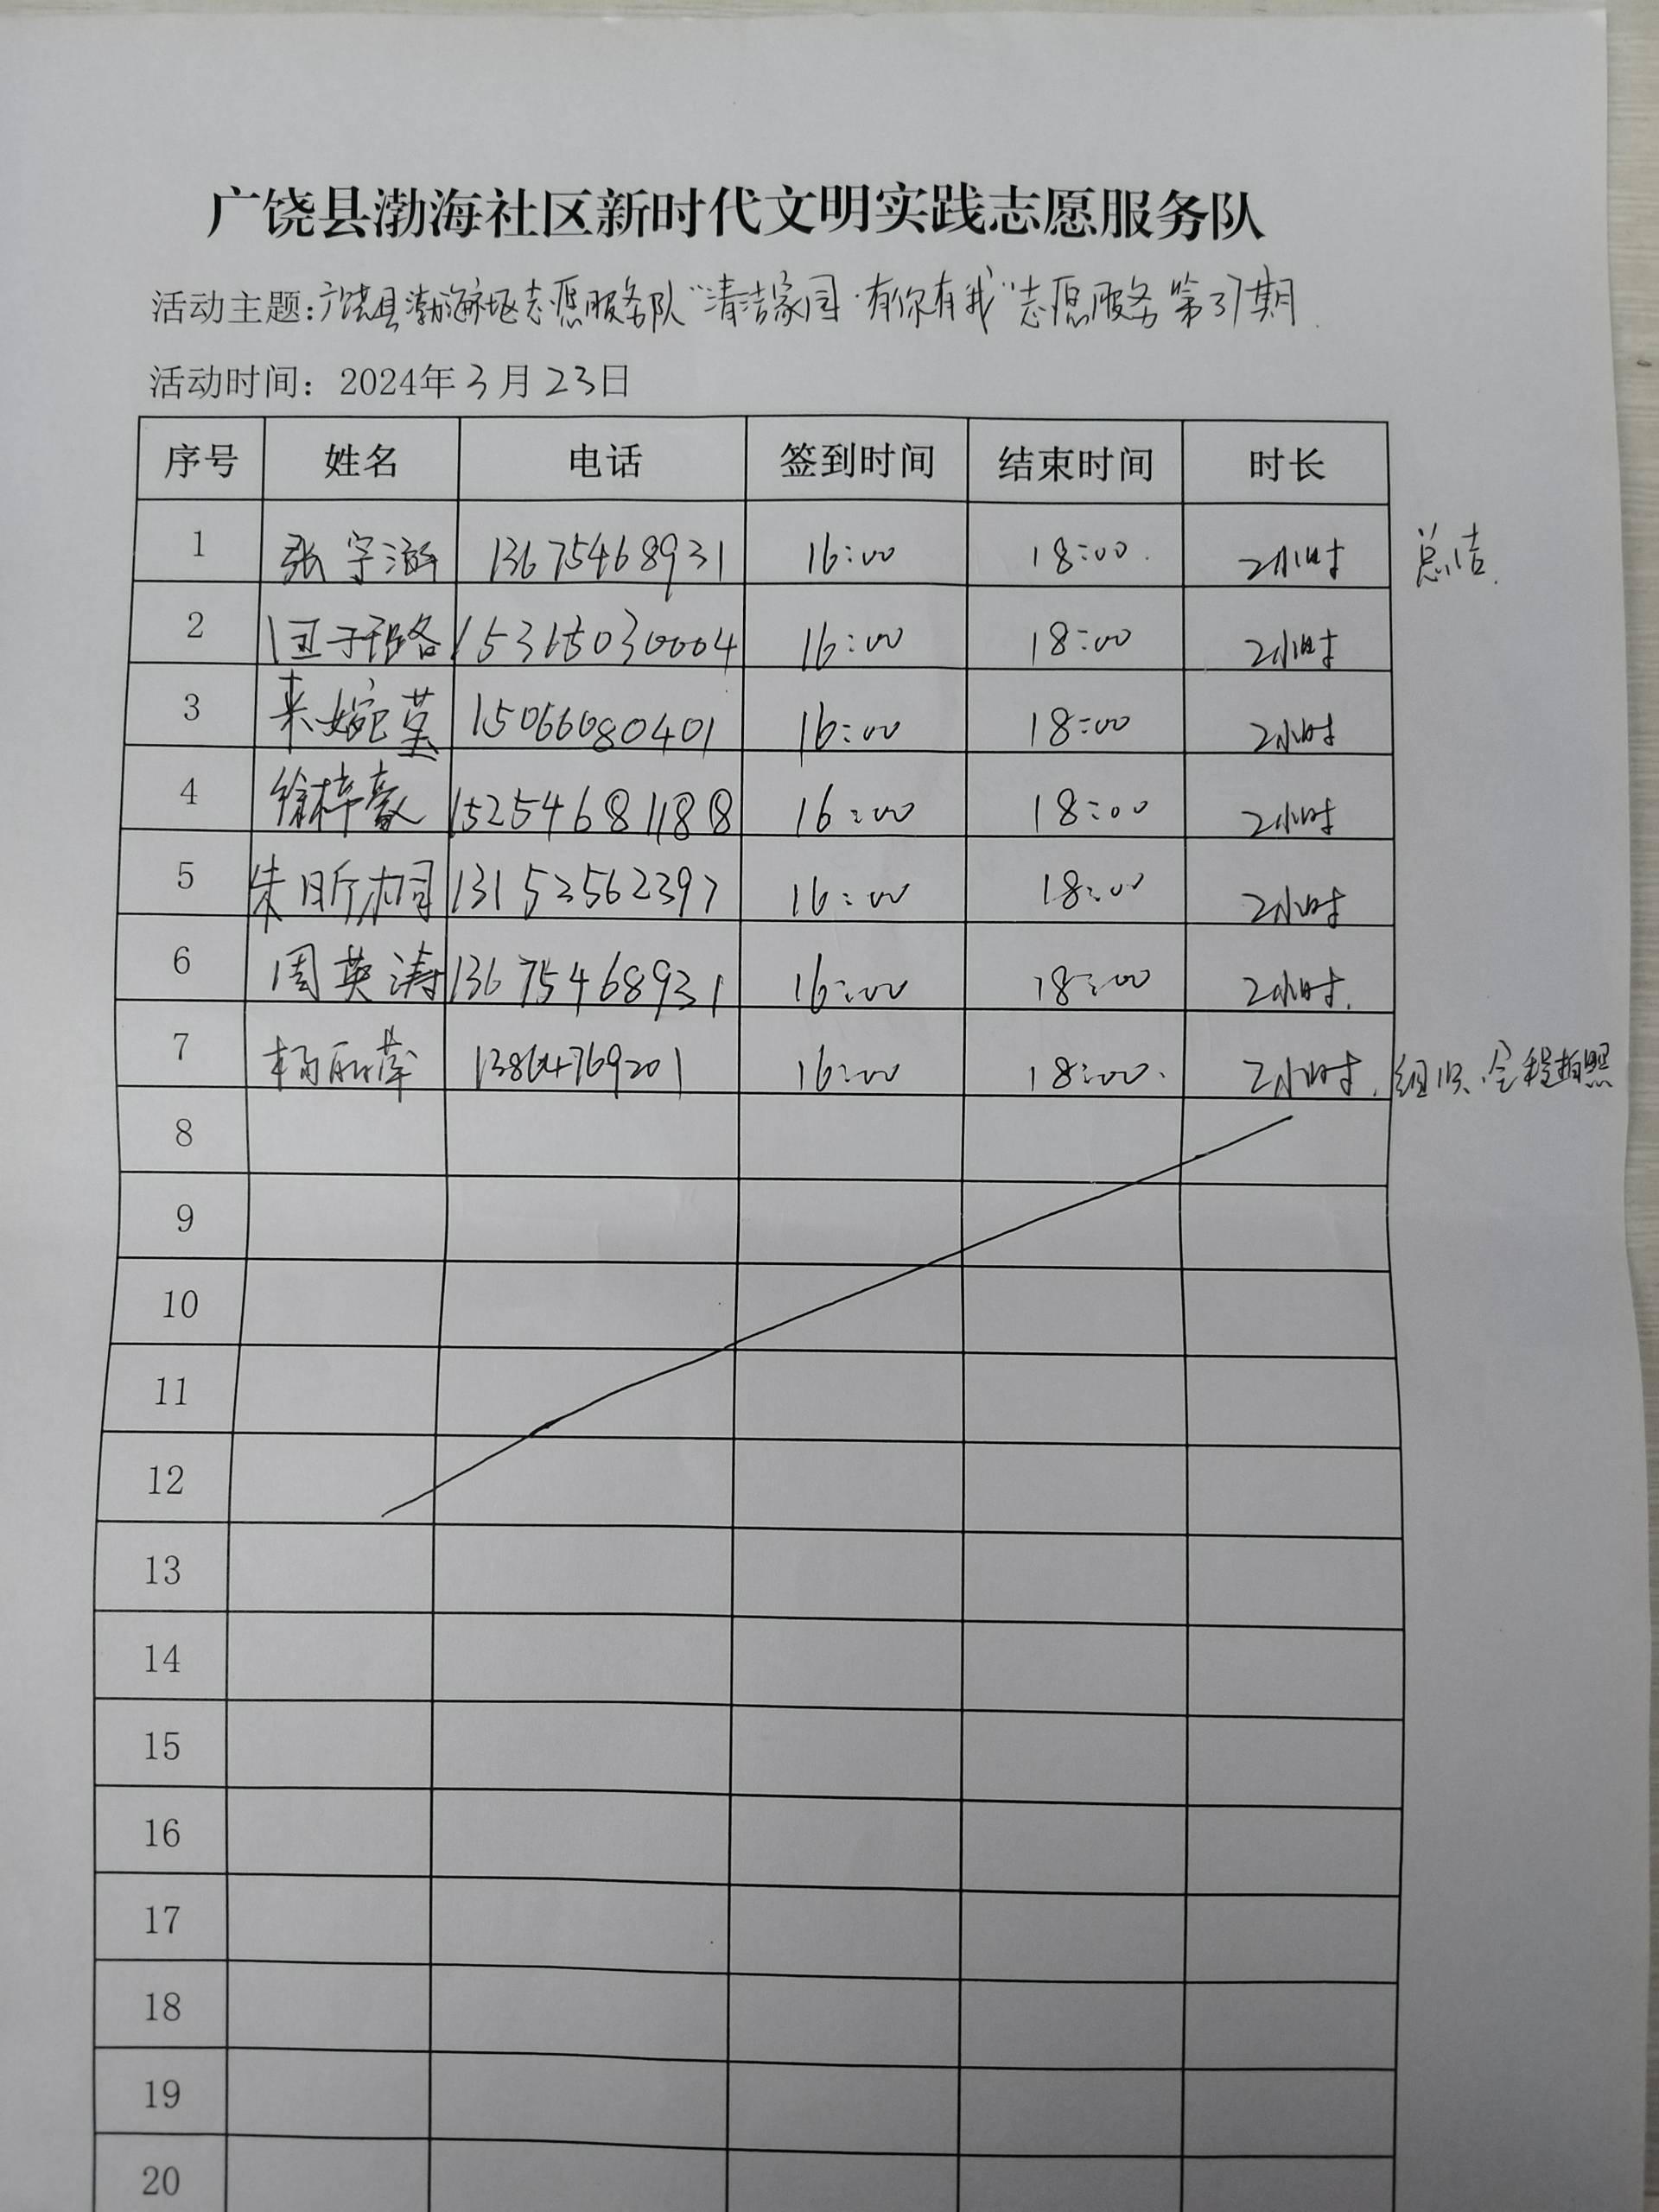 广饶县渤海社区新时代文明实践志愿服务队
活动主题:广饶县渤海社区志愿服务队“清洁家园·有你有我”志愿服务第37期
活动时间：2024年3月23日
序号 姓名 电话 签到时间 结束时间 时长
1 张宇涵 13675468931 16:00 18:00 2小时 总结
2 15365030004 16:00 18:00 2小时
3 来婉莹 15066080401 16:00 18:00 2小时
4 徐梓豪 15254681188 16:00 18:00 2小时
5 朱昕桐 13153562397 16:00 18:00 2小时
6 周英涛 13675468931 16:00 18:00 2小时
7 杨丽萍 13864769201 16:00 18:00 2小时 组织、全程拍照
8
9
10
11
12
13
14
15
16
17
18
19
20